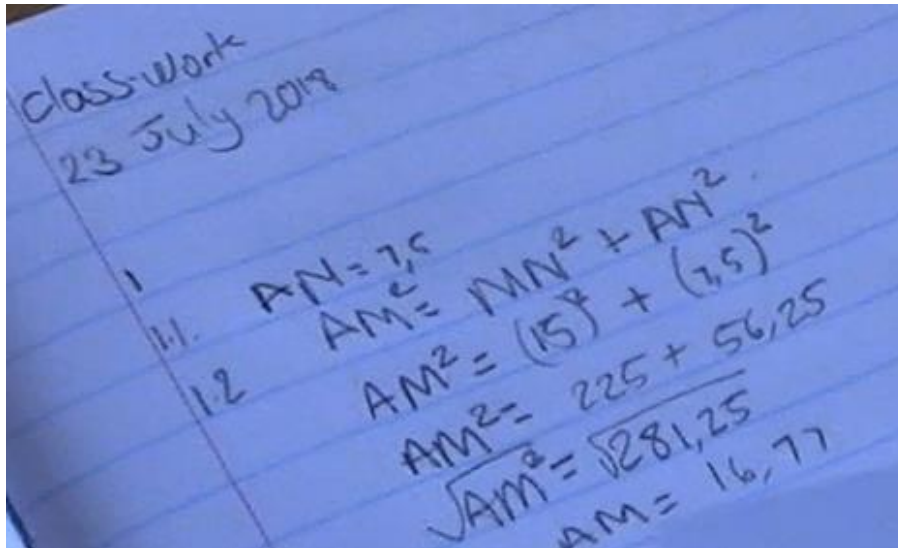 class-work
23 July 2018
1
1.1. AN = 7,5
1.2 AM² = MN² + AN²
AM² = (15)² + (7,5)²
AM² = 225 + 56,25
√AM² = √281,25
AM = 16,77